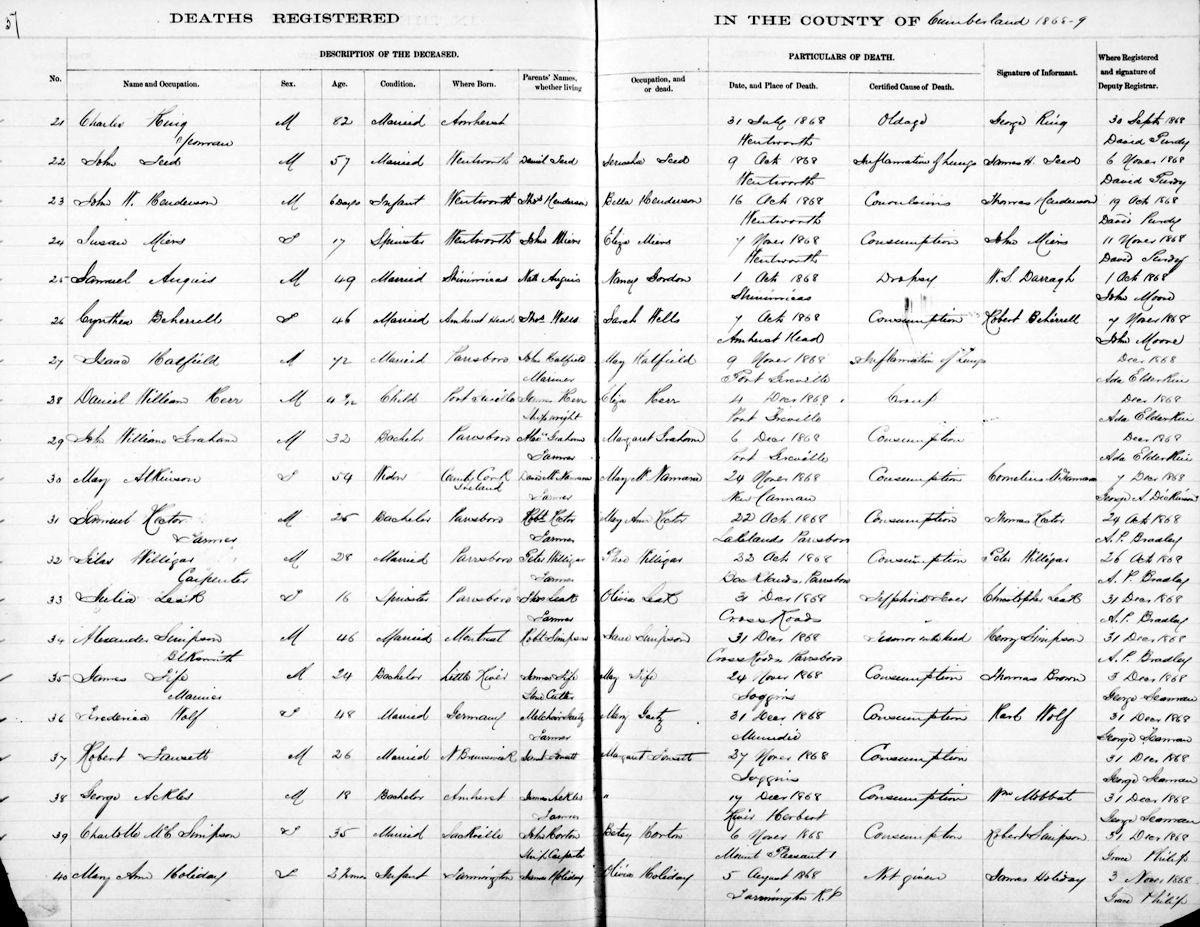 51
DEATHS REGISTERED IN THE COUNTY OF Cumberland 1868-9
DESCRIPTION OF THE DECEASED. PARTICULARS OF DEATH.
No. Name and Occupation. Sex. Age. Condition. Where Born. Parents' Names, whether living Occupation, and or dead. Date, and Place of Death. Certified Cause of Death. Signature of Informant. Where Registered and signature of Deputy Registrar.
21 Charles King M 82 Married Amherst 31 July 1868 Oldage George King 30 Sept 1868
Yeoman Wentworth David Purdy
22 John Seed M 57 Married Wentworth Daniel Seed Jerusha Seed 9 Oct 1868 Inflamation of Lungs James H. Seed 6 Nover 1868
Wentworth David Purdy
23 John W. Henderson M 6 days Infant Wentworth Thos Henderson Bella Henderson 16 Oct 1868 Convulsions Thomas Henderson 19 Oct 1868
Wentworth David Purdy
24 Susan Miens F 17 Spinster Wentworth John Miens Eliza Miens 7 Nover 1868 Consumption John Miens 11 Nover 1868
Wentworth David Purdy
25 Samuel Anguis M 49 Married Shinimicas Nath Anguis Nancy Gordon 1 Oct 1868 Dropsy W. S. Darragh 1 Oct 1868
Shinimicas John Moore
26 Cynthea Beherrell F 46 Married Amherst Head Thos Wells Sarah Wells 7 Oct 1868 Consumption Robert Beherrell 7 Nover 1868
Amherst Head John Moore
27 Isaac Hatfield M 72 Married Parrsboro John Hatfield May Hatfield 9 Nover 1868 Inflamation of Lungs Decr 1868
Mariner Port Greville Ada Elderkin
28 Daniel William Kerr M 4 Child Port Greville James Kerr Eliza Kerr 4 Decr 1868 Croup Decr 1868
Shipwright Port Greville Ada Elderkin
29 John William Graham M 32 Bachelor Parrsboro Graham Margaret Graham 6 Decr 1868 Consumption Decr 1868
Farmer Port Greville Ada Elderkin
30 Mary Atkinson F 54 Widow County Cork 24 Nover 1868 Consumption Cornelius McNamara 7 Decr 1868
Ireland Farmer New Cannan George A. Dickinson
31 Samuel Hector M 25 Bachelor Parrsboro Robt Hector May Ann Hector 22 Oct 1868 Consumption Thomas Hector 24 Oct 1868
Farmer Farmer Lakelands Parrsboro A. P. Bradley
32 Silas Willigar M 28 Married Parrsboro Peter Willigar Willigar 22 Oct 1868 Consumption Peter Willigar 26 Oct 1868
Carpenter Farmer Parrsboro A. P. Bradley
33 Julia Leak F 16 Spinster Parrsboro Thos Leak Olivia Leak 31 Decr 1868 Typhoid Fever Christopher Leak 31 Decr 1868
Farmer Cross Roads A. P. Bradley
34 Alexander Simpson M 46 Married Montreal Robt Simpson Jane Simpson 31 Decr 1868 Henry Simpson 31 Decr 1868
Blksmith Cross Roads Parrsboro A. P. Bradley
35 James Fife M 24 Bachelor Little River James Fife May Fife 24 Nover 1868 Consumption Thomas Brown 3 Decr 1868
Mariner Stone Cutter Joggins George Seaman
36 Frederica Wolf F 48 Married Germany Melchoir Gentz Mary Gentz 31 Decr 1868 Consumption Karl Wolf 31 Decr 1868
Farmer Minudie George Seaman
37 Robert Fawsett M 26 Married N Brunswick Margaret Fawsett 27 Nover 1868 Consumption 31 Decr 1868
Joggins George Seaman
38 George Ackles M 18 Bachelor Amherst James Ackles " 17 Decr 1868 Consumption Wm Mobbat 31 Decr 1868
Farmer River Herbert George Seaman
39 Charlotte McC Simpson F 35 Married Sackville John Horton Betsy Horton 6 Nover 1868 Consumption Robert Simpson 31 Decr 1868
Ship Carpenter Mount Pleasant Grace Philip
40 Mary Ann Holiday F Infant Farmington James Holiday Olivia Holiday 5 August 1868 Not given James Holiday 3 Nover 1868
Farmington R.P Grace Philip